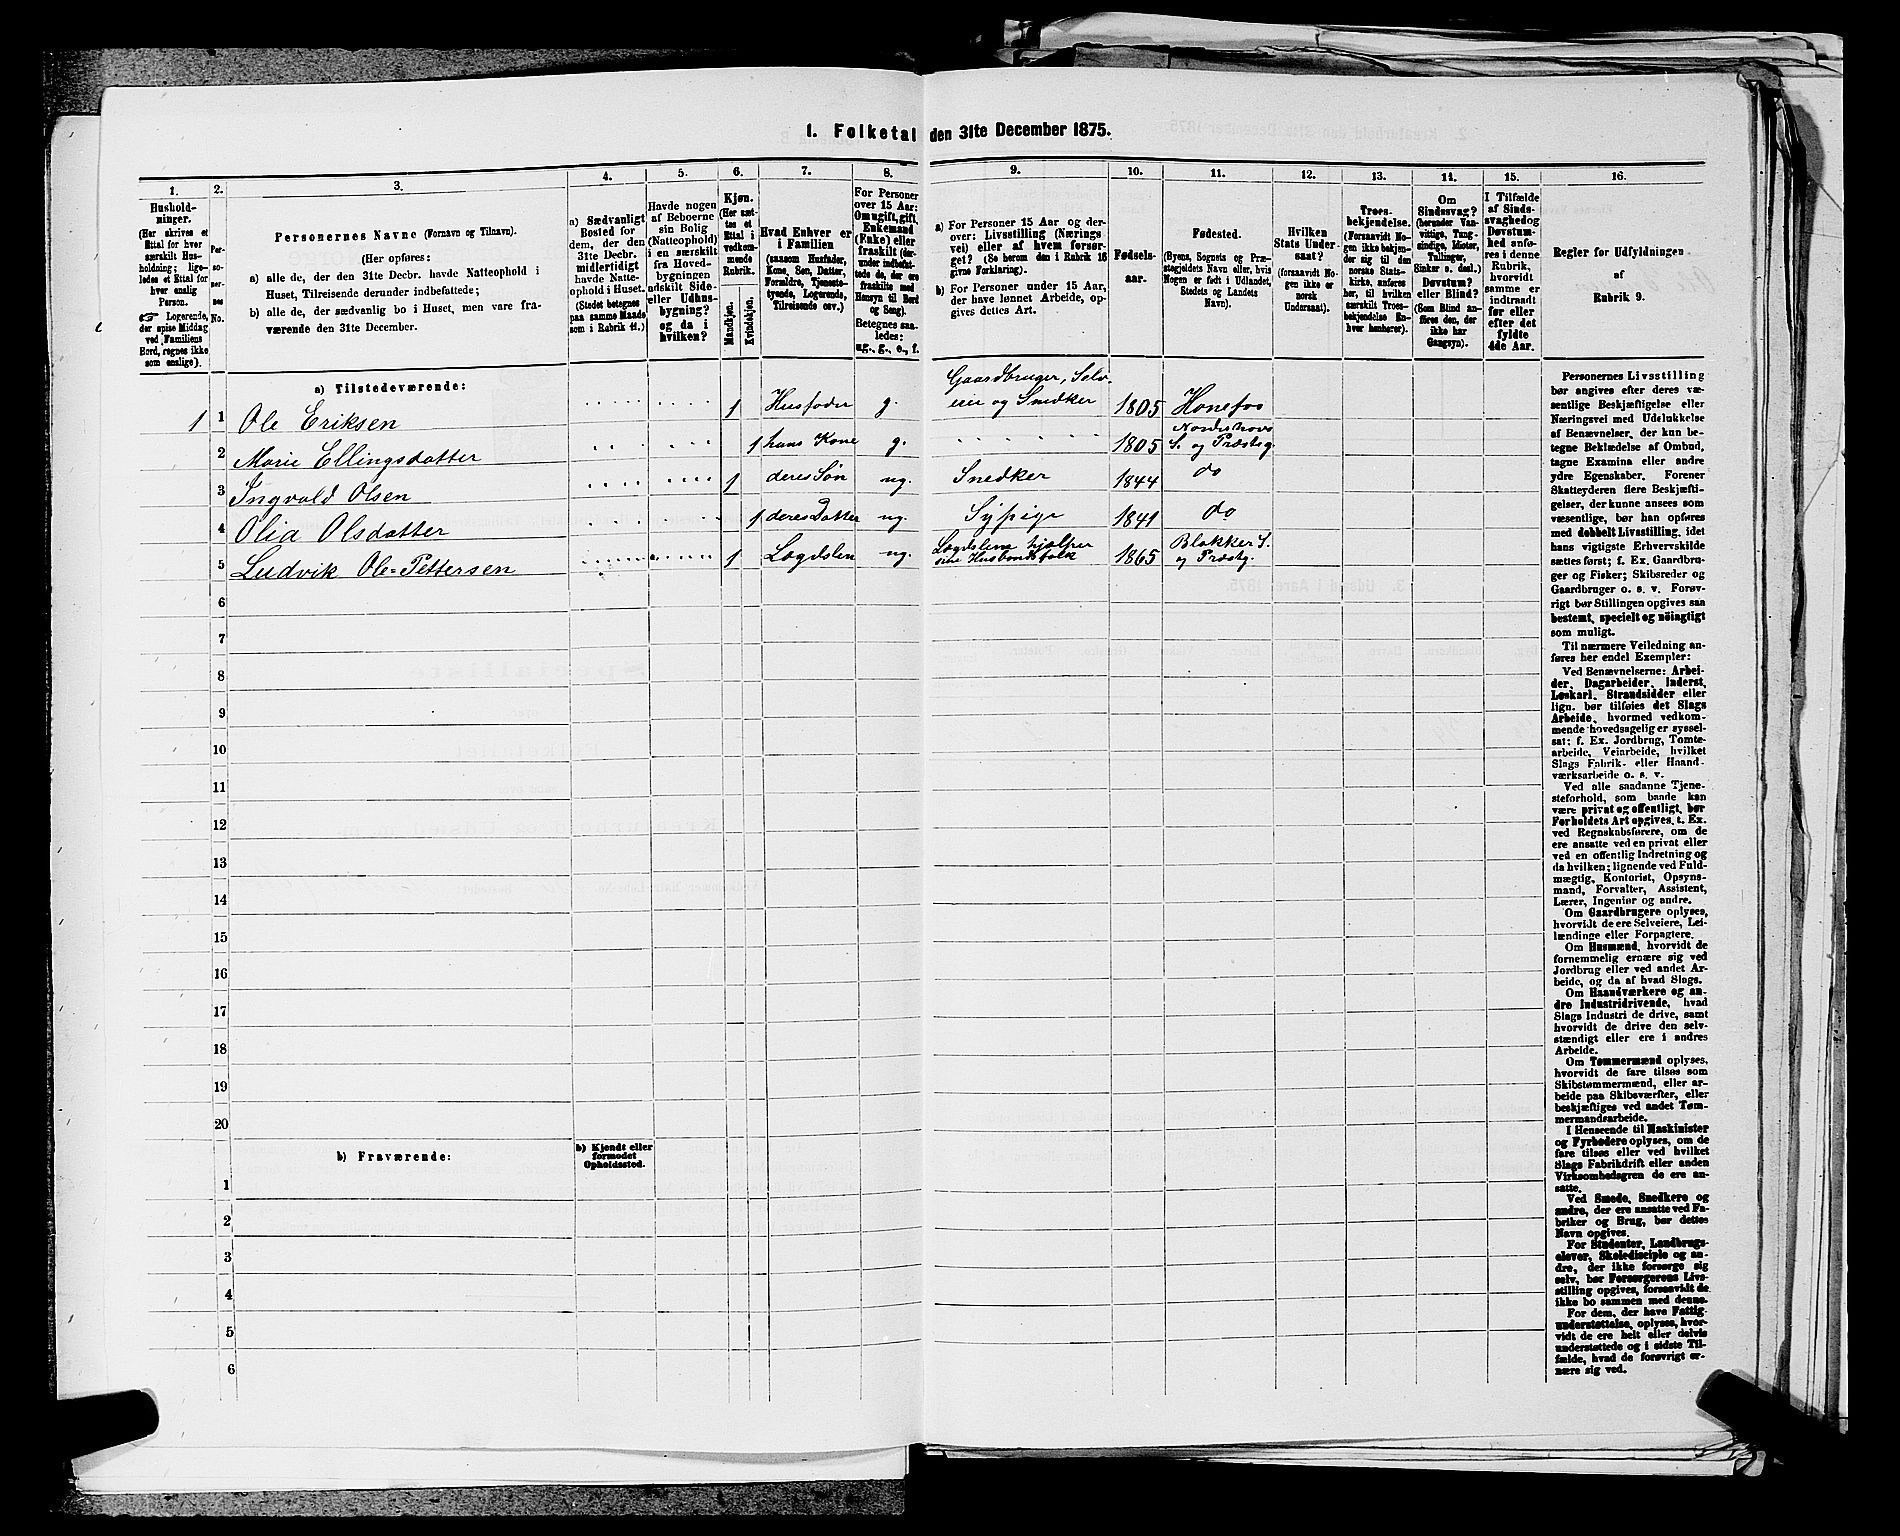 1. Folketal den 31te December 1875.
1.
2.
3.
4.
5.
6.
7.
8.
9.
10.
11.
12.
13.
14.
15.
16.
Hushold-
ninger.
(Her skrives et
Ettal for hver
særskilt Hus-
holdning; lige-
ledes et Ettal for
hver enslig
Person.
☞ Logerende,
der spise Middag
ved Familiens
Bord, regnes ikke
som enslige).
Per-
so-
ner-
nes
No.
Personernes Navne (Fornavn og Tilnavn).
(Her opføres:
a) alle de, der den 31te Decbr. havde Natteophold i
Huset, Tilreisende derunder indbefattede;
b) alle de, der sædvanlig bo i Huset, men vare fra-
værende den 31te December.
a) Sædvanligt
Bosted for
dem, der den
31te Decbr.
midlertidigt
havde Natte-
ophold i Huset.
(Stedet betegnes
paa samme Maade
som i Rubrik 11.)
Havde nogen
af Beboerne
sin Bolig
(Natteophold)
i en særskilt
fra Hoved-
bygningen
adskilt Side-
eller Udhus-
bygning?
og da i
hvilken?
Kjøn.
(Her sæt-
tes et
Ettal i
vedkom-
mende
Rubrik.
Mandkjøn.
Kvindekjøn.
Hvad Enhver er
i Familien
(saasom Husfader,
Kone, Søn, Datter,
Forældre, Tjeneste-
tyende, Logerende,
Tilreisende osv.)
For Personer
over 15 Aar:
Om ugift, gift,
Enkemand
(Enke) eller
fraskilt (der-
under indbefat-
tede de, der ere
fraskilte med
Hensyn til Bord
og Seng).
Betegnes saa-
ledes:
ug., g., e., f.
a) For Personer 15 Aar og der-
over: Livsstilling (Nærings-
vei) eller af hvem forsør-
get? (Se herom den i Rubrik 16
givne Forklaring).
b) For Personer under 15 Aar,
der have lønnet Arbeide, op-
gives dettes Art.
Fødsels-
aar.
Fødested.
(Byens, Sognets og Præ-
stegjeldets Navn eller, hvis
Nogen er født i Udlandet,
Stedets og Landets
Navn).
Hvilken
Stats Under-
saat?
(forsaavidt No-
gen ikke er
norsk
Undersaat).
Troes-
bekjendelse.
(Forsaavidt No-
gen ikke bekjen-
der sig til den
norske Stats-
kirke, anføres
her, til hvilken
særskilt Troes-
bekjendelse En-
hver henhører).
Om
Sindssvag?
(herunder Van-
vittige, Tung-
sindige, Idioter,
Tullinger,
Sinker o. desl.)
Døvstum?
eller Blind?
(Som Blind an-
føres den, der
ikke har
Gangsyn).
I Tilfælde
af Sinds-
svaghed og
Døvstum-
hed anfø-
res i denne
Rubrik,
hvorvidt
samme er
indtraadt
før eller
efter det
fyldte
4de Aar.
Regler for Udfyldningen
af
Rubrik 9.
a) Tilstedeværende:
1 1 Ole Eriksen 1 Husfader g. Gaardbruger, Selv-
eier og Snedker 1805 Hønefos
2 Marie Ellingsdatter 1 hans Kone g. 1805 Norderhovs
S. og Præsteg.
3 Ingvald Olsen 1 deres Søn ug. Snedker 1844 do
4 Olia Olsdatter 1 deres Datter ug. Sypige 1841 do
5 Ludvik Ole-Pettersen 1 Lægdslem ug. Lægdslem hjælper
sine Husbondsfolk 1865 Blakker S.
og Præsteg.
6
7
8
9
10
11
12
13
14
15
16
17
18
19
20
b) Fraværende:
b) Kjendt eller
formodet
Opholdssted.
1
2
3
4
5
6
Personernes Livsstilling
bør angives efter deres væ-
sentlige Beskjæftigelse eller
Næringsvei med Udelukkelse
af Benævnelser, der kun be-
tegne Beklædelse af Ombud,
tagne Examina eller andre
ydre Egenskaber. Forener
Skatteyderen flere Beskjæfti-
gelser, der kunne ansees som
væsentlige, bør han opføres
med dobbelt Livsstilling, idet
hans vigtigste Erhvervskilde
sættes først; f. Ex. Gaardbru-
ger og Fisker; Skibsreder og
Gaardbruger o. s. v. Forøv-
rigt bør Stillingen opgives saa
bestemt, specielt og nöiagtigt
som muligt.
Til nærmere Veiledning an-
føres her endel Exempler:
Ved Benævnelserne: Arbei-
der, Dagarbeider, Inderst,
Løskarl, Strandsidder eller
lign. bør tilføies det Slags
Arbeide, hvormed vedkom-
mende hovedsagelig er syssel-
sat; f. Ex. Jordbrug, Tomte-
arbeide, Veiarbeide, hvilket
Slags Fabrik- eller Haand-
værksarbeide o. s. v.
Ved alle saadanne Tjene-
steforhold, som baade kan
være privat og offentligt, bør
Forholdets Art opgives, t. Ex.
ved Regnskabsførere, om de
ere ansatte ved en privat eller
ved en offentlig Indretning og
da hvilken; lignende ved Fuld-
mægtig, Kontorist, Opsyns-
mand, Forvalter, Assistent,
Lærer, Ingeniør og andre.
Om Gaardbrugere oplyses,
hvorvidt de ere Selveiere, Lei-
lændinge eller Forpagtere.
Om Husmænd, hvorvidt de
fornemmelig ernære sig ved
Jordbrug eller ved andet Ar-
beide, og da af hvad Slags.
Om Haandværkere og an-
dre Industridrivende, hvad
Slags Industri de drive, samt
hvorvidt de drive den selv-
stændigt eller ere i andres
Arbeide.
Om Tømmermænd oplyses,
hvorvidt de fare tilsøs som
Skibstømmermænd, eller ar-
beide paa Skibsværfter, eller
beskjæftiges ved andet Tøm-
mermandsarbeide.
I Henseende til Maskinister
og Fyrbødere oplyses, om de
fare tilsøs eller ved hvilket
Slags Fabrikdrift eller anden
Virksomhedsgren de ere an-
satte.
Ved Smede, Snedkere og
andre, der ere ansatte ved Fa-
briker og Brug, bør dettes
Navn opgives.
For Studenter, Landbrugs-
elever, Skoledisciple og an-
dre, der ikke forsørge sig
selv, bør Forsørgerens Livs-
stilling opgives, forsaavidt de
ikke bo sammen med denne.
For dem, der have Fattig-
understøttelse, oplyses, hvor-
vidt de ere helt eller delvis
understøttede og i sidste Til-
fælde, hvad de forøvrigt er-
nære sig ved.